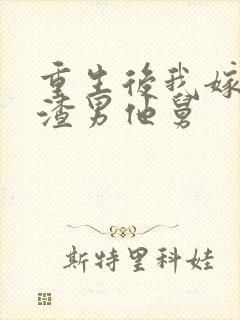 重生後我嫁
渣男他舅
斯特里科娃